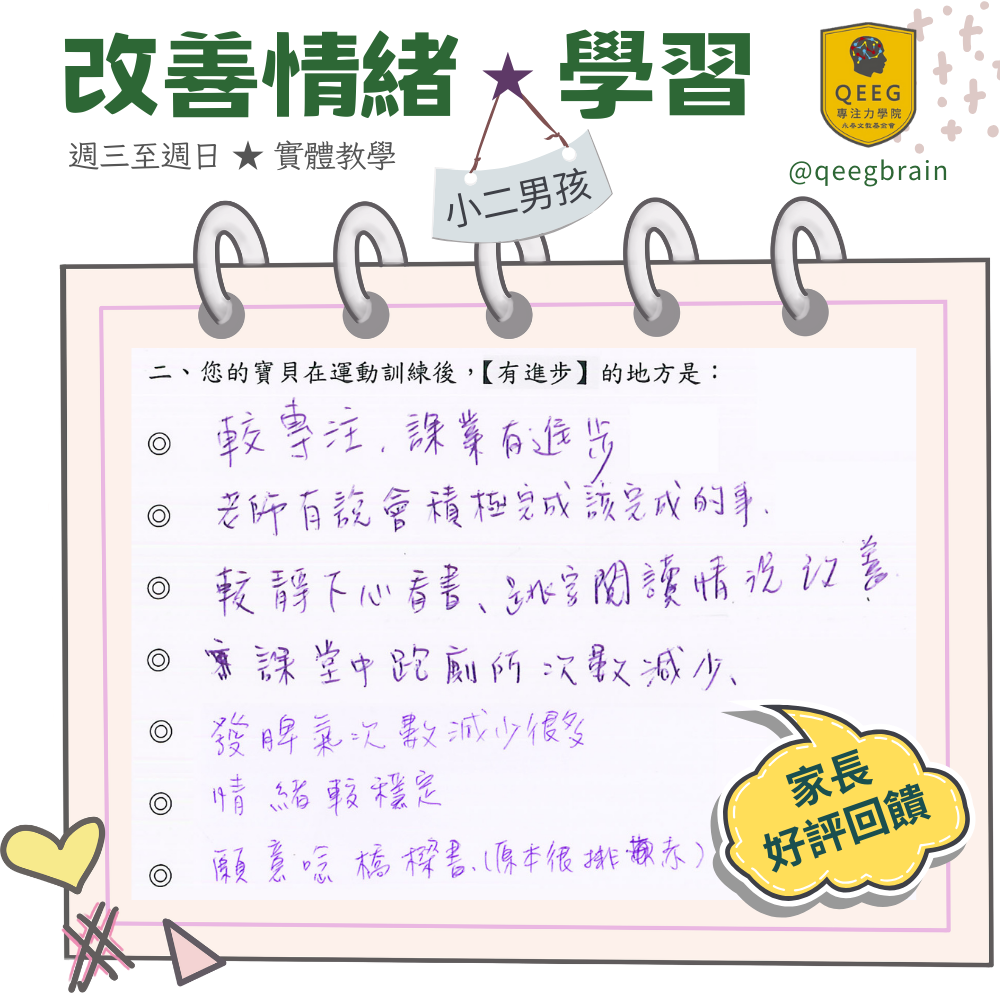 改善情緒★學習
週三至週日 ★ 實體教學
小二男孩
QEEG
專注力學院
@qeegbrain
二、您的寶貝在運動訓練後，【有進步】的地方是：
◎ 較專注，課業有進步
◎ 老師有說會積極完成該完成的事.
◎ 較靜下心看書、跳字閱讀情況改善.
◎ 課堂中跑廁所次數減少、
◎ 發脾氣次數減少很多
◎ 情緒較穩定
◎ 願意唸橋樑書.(原本很排
家長
好評回饋